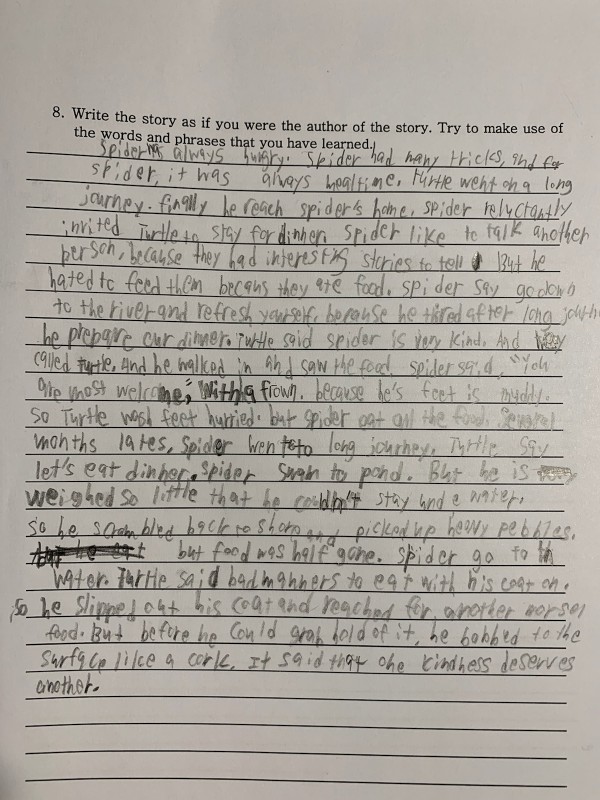 8. Write the story as if you were the author of the story. Try to make use of
the words and phrases that you have learned.
Spider was always hungry. Spider had many tricks, and for
spider, it was always mealtime. Turtle went on a long
journey. finally he reach spider's home, spider reluctantly
invited Turtle to stay for dinner. Spider like to talk another
person, because they had interesting stories to tell But he
hated to feed them becaus they ate food. spider say go down
to the river and refresh yourself, because he tired after long
he prepare our dinner. Turtle said spider is very kind. And
called turtle. And he walked in and saw the food. spider said, "you
are most welcome," with a frown. because he's feet is muddy.
So Turtle wash feet hurried. but spider eat all the food. Several
months lates, spider went to long journey. Turtle say
let's eat dinner. Spider swam to pond. But he is
weighed so little that he couldn't stay unde water.
so he scrambled back to shore and picked up heavy pebbles.
but food was half gone. spider go to
water. Turtle said bad manners to eat with his coat on.
so he slipped out his coat and reached for another morsel
food. But before he could grab hold of it, he bobbed to the
surface like a cork. It said that one kindness deserves
another.